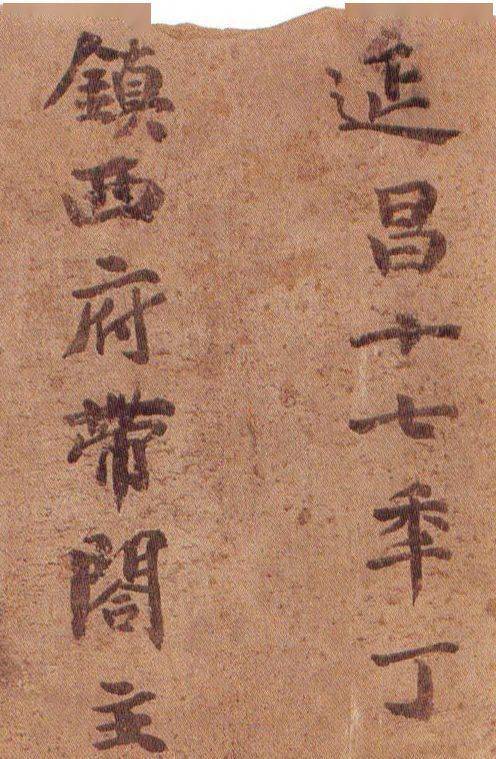 延昌十七年丁
鎮西府帶閤主